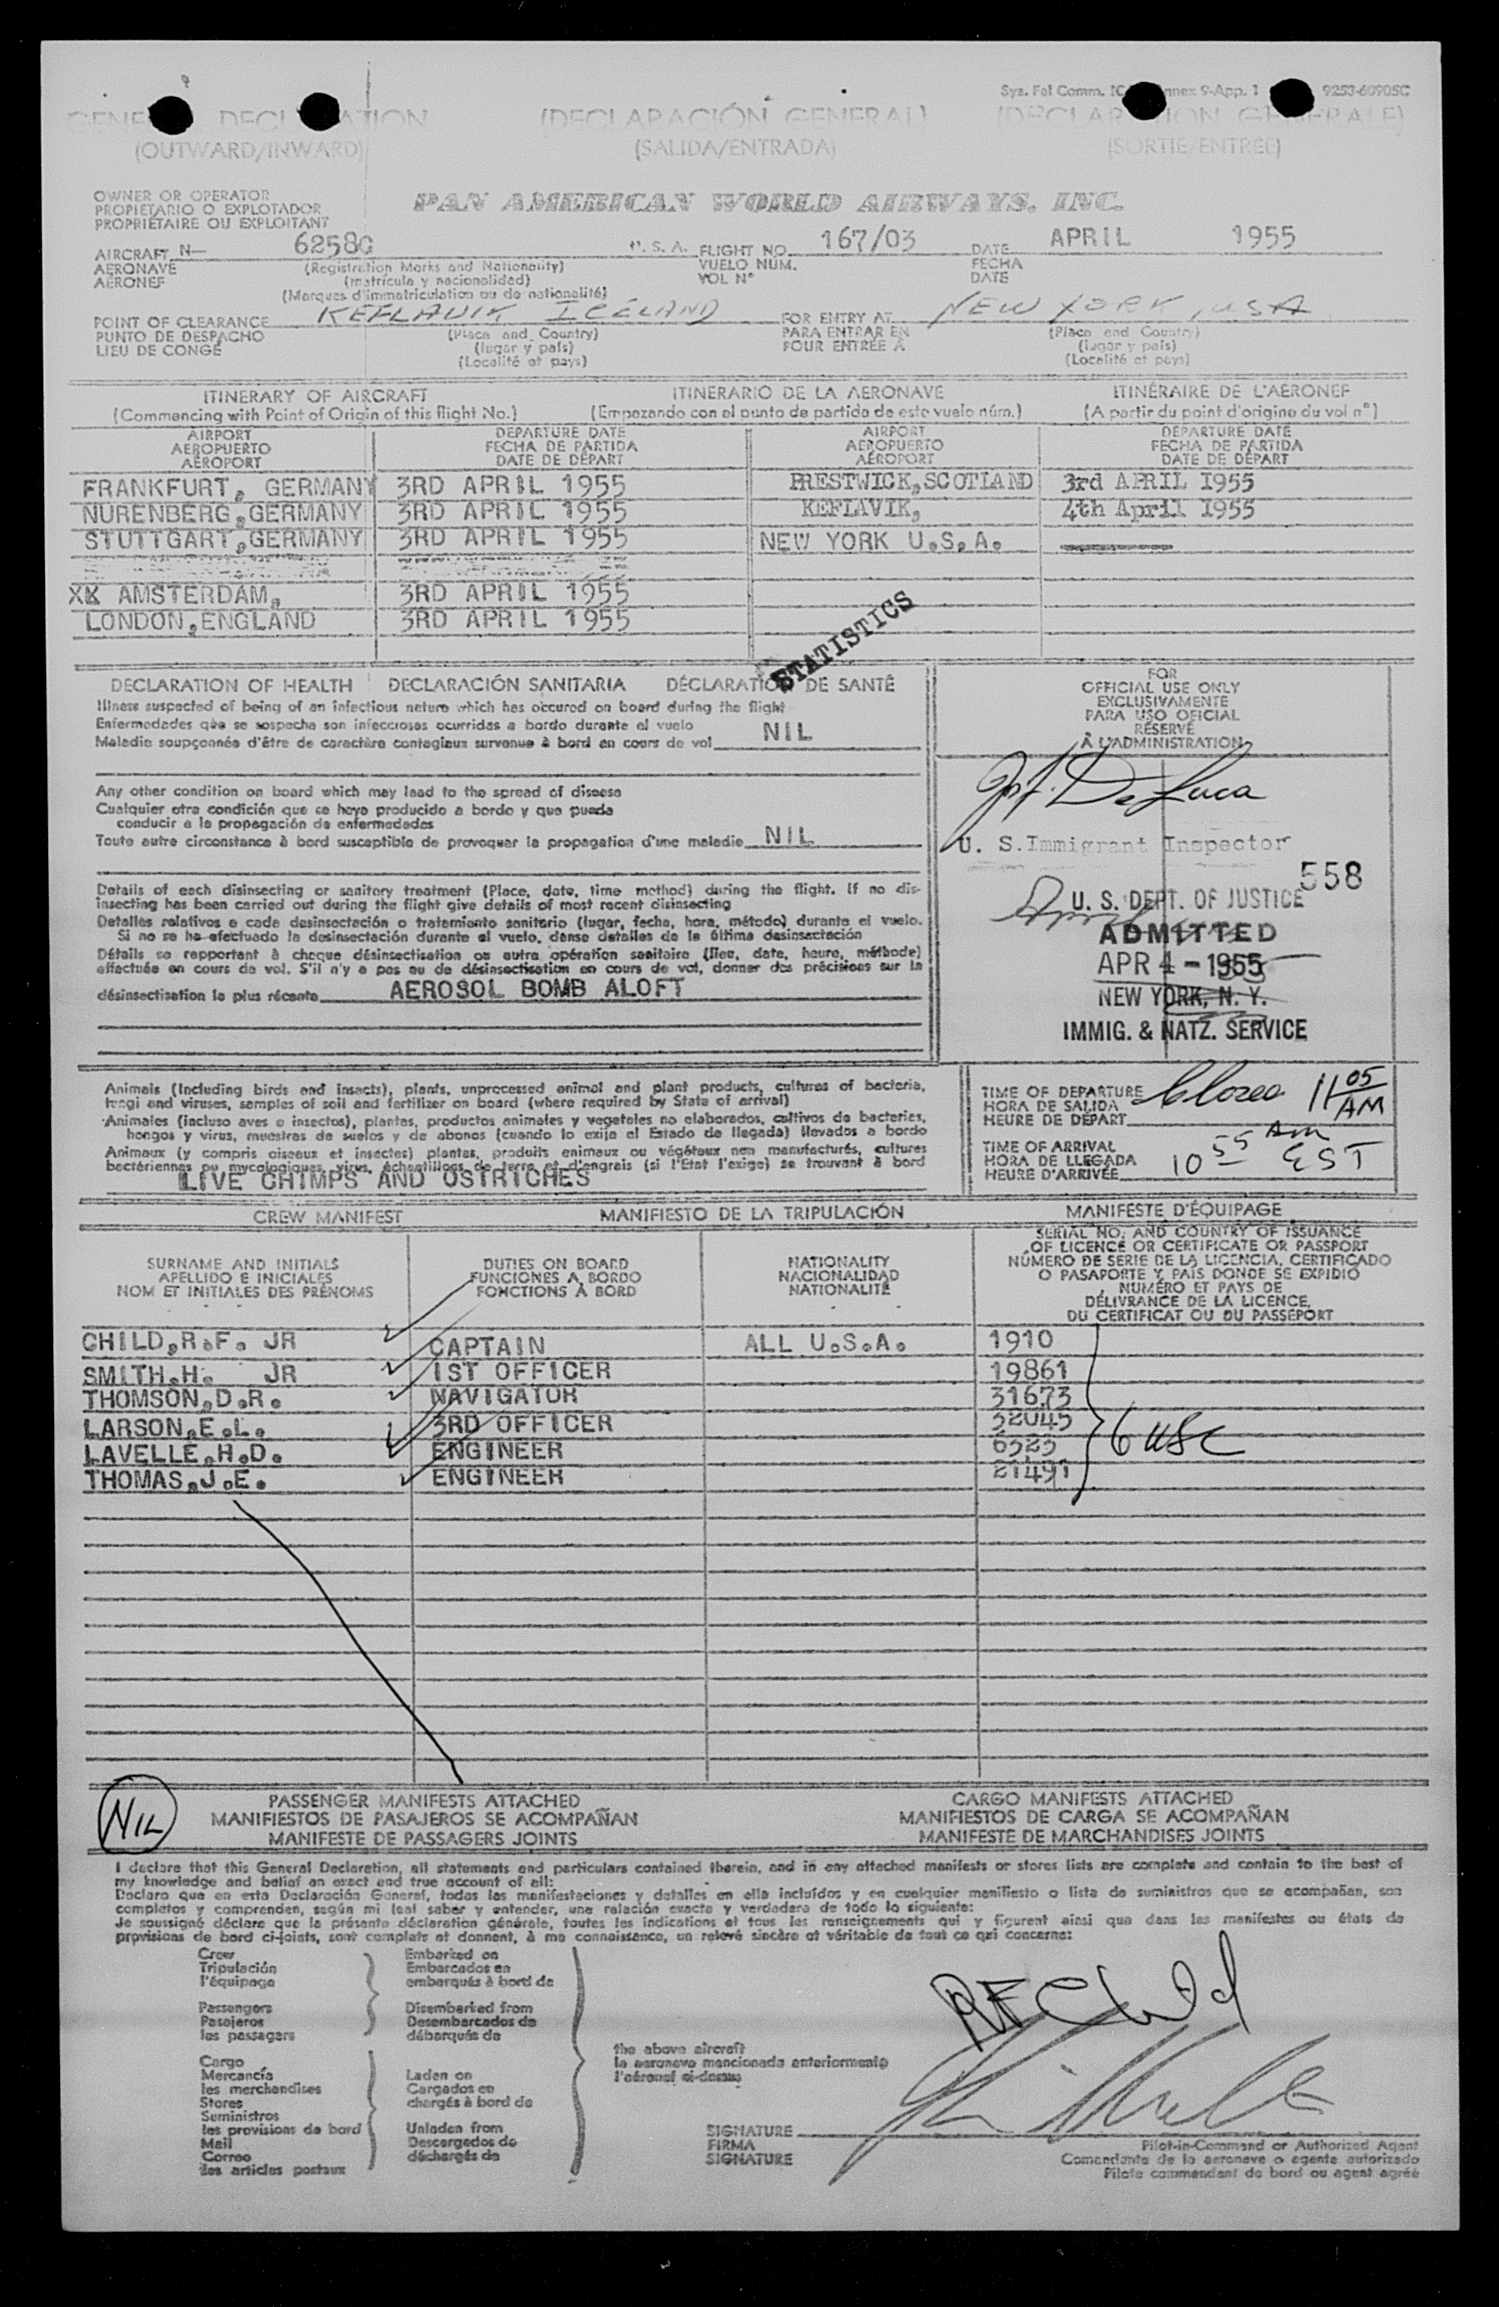 Sys. Fal Comm. IC nnex 9-App. 1 9253-60905C
GENE DECL ATION (DECLARACIÓN GENERAL) (DECLAR ION GENERALE)
(OUTWARD/INWARD) (SALIDA/ENTRADA) (SORTIE/ENTRÉE)
OWNER OR OPERATOR PAN AMERICAN WORLD AIRWAYS, INC.
PROPIETARIO O EXPLOTADOR
PROPRIÉTAIRE OU EXPLOITANT
AIRCRAFT N— 6258C U. S. A. FLIGHT NO. 167/03 DATE APRIL 1955
AERONAVE (Registration Marks and Nationality) VUELO NÚM. FECHA
AÉRONEF (matrícula y nacionalidad) VOL N° DATE
(Marques d'immatriculation ou de nationalité)
POINT OF CLEARANCE KEFLAVIK ICELAND FOR ENTRY AT NEW YORK, USA
PUNTO DE DESPACHO (Place and Country) PARA ENTRAR EN (Place and Country)
LIEU DE CONGÉ (lugar y país) POUR ENTRÉE À (lugar y país)
(Localité et pays) (Localité et pays)
ITINERARY OF AIRCRAFT ITINERARIO DE LA AERONAVE ITINÉRAIRE DE L'AÉRONEF
(Commencing with Point of Origin of this flight No.) (Empezando con el punto de partida de este vuelo núm.) (A partir du point d'origine du vol n°)
AIRPORT DEPARTURE DATE AIRPORT DEPARTURE DATE
AEROPUERTO FECHA DE PARTIDA AEROPUERTO FECHA DE PARTIDA
AÉROPORT DATE DE DÉPART AÉROPORT DATE DE DÉPART
FRANKFURT, GERMANY 3RD APRIL 1955 PRESTWICK, SCOTLAND 3rd APRIL 1955
NURENBERG, GERMANY 3RD APRIL 1955 KEFLAVIK, 4th April 1955
STUTTGART, GERMANY 3RD APRIL 1955 NEW YORK U.S.A.
XX AMSTERDAM, 3RD APRIL 1955
LONDON, ENGLAND 3RD APRIL 1955
STATISTICS
DECLARATION OF HEALTH DECLARACIÓN SANITARIA DÉCLARATION DE SANTÉ
Illness suspected of being of an infectious nature which has occured on board during the flight
Enfermedades que se sospecha son infecciosas ocurridas a bordo durante el vuelo
Maladie soupçonnée d'être de caractère contagieux survenue à bord en cours de vol NIL
Any other condition on board which may lead to the spread of disease
Cualquier otra condición que se haya producido a bordo y que pueda
conducir a la propagación de enfermedades
Toute autre circonstance à bord susceptible de provoquer la propagation d'une maladie NIL
Details of each disinsecting or sanitary treatment (Place, date, time method) during the flight. If no dis-
insecting has been carried out during the flight give details of most recent disinsecting
Detalles relativos a cada desinsectación o tratamiento sanitario (lugar, fecha, hora, método) durante el vuelo.
Si no se ha efectuado la desinsectación durante el vuelo, dense detalles de la última desinsectación
Détails se rapportant à chaque désinsectisation ou autre opération sanitaire (lieu, date, heure, méthode)
effectuée en cours de vol. S'il n'y a pas eu de désinsectisation en cours de vol, donner des précisions sur la
désinsectisation la plus récente AEROSOL BOMB ALOFT
FOR
OFFICIAL USE ONLY
EXCLUSIVAMENTE
PARA USO OFICIAL
RÉSERVÉ
À L'ADMINISTRATION
Jos. F. DeLuca
U. S. Immigrant Inspector
558
U. S. DEPT. OF JUSTICE
April
ADMITTED
APR 4 - 1955
NEW YORK, N. Y.
IMMIG. & NATZ. SERVICE
Animals (Including birds and insects), plants, unprocessed animal and plant products, cultures of bacteria,
fungi and viruses, samples of soil and fertilizer on board (where required by State of arrival)
Animales (incluso aves e insectos), plantas, productos animales y vegetales no elaborados, cultivos de bacterias,
hongos y virus, muestras de suelos y de abonos (cuando lo exija el Estado de llegada) llevados a bordo
Animaux (y compris oiseaux et insectes) plantes, produits animaux ou végétaux non manufacturés, cultures
bactériennes ou mycologiques, virus, échantillons de terre et d'engrais (si l'Etat l'exige) se trouvant à bord
LIVE CHIMPS AND OSTRICHES
TIME OF DEPARTURE Closed 11 05 AM
HORA DE SALIDA
HEURE DE DÉPART
TIME OF ARRIVAL 10 55 AM EST
HORA DE LLEGADA
HEURE D'ARRIVÉE
CREW MANIFEST MANIFIESTO DE LA TRIPULACIÓN MANIFESTE D'ÉQUIPAGE
SURNAME AND INITIALS DUTIES ON BOARD NATIONALITY SERIAL NO. AND COUNTRY OF ISSUANCE
APELLIDO E INICIALES FUNCIONES A BORDO NACIONALIDAD OF LICENCE OR CERTIFICATE OR PASSPORT
NOM ET INITIALES DES PRÉNOMS FONCTIONS À BORD NATIONALITÉ NÚMERO DE SERIE DE LA LICENCIA, CERTIFICADO
O PASAPORTE Y PAÍS DONDE SE EXPIDIÓ
NUMÉRO ET PAYS DE
DÉLIVRANCE DE LA LICENCE,
DU CERTIFICAT OU DU PASSEPORT
CHILD, R.F. JR CAPTAIN ALL U.S.A. 1910
SMITH, H. JR 1ST OFFICER 19861
THOMSON, D.R. NAVIGATOR 31673
LARSON, E.L. 3RD OFFICER 32045
LAVELLE, H.D. ENGINEER 6523 6 USC
THOMAS, J.E. ENGINEER 21491
NIL
PASSENGER MANIFESTS ATTACHED CARGO MANIFESTS ATTACHED
MANIFIESTOS DE PASAJEROS SE ACOMPAÑAN MANIFIESTOS DE CARGA SE ACOMPAÑAN
MANIFESTE DE PASSAGERS JOINTS MANIFESTE DE MARCHANDISES JOINTS
I declare that this General Declaration, all statements and particulars contained therein, and in any attached manifests or stores lists are complete and contain to the best of
my knowledge and belief an exact and true account of all:
Declaro que en esta Declaración General, todas las manifestaciones y detalles en ella incluídos y en cualquier manifiesto o lista de suministros que se acompañan, son
completos y comprenden, según mi leal saber y entender, una relación exacta y verdadera de todo lo siguiente:
Je soussigné déclare que la présente déclaration générale, toutes les indications et tous les renseignements qui y figurent ainsi que dans les manifestes ou états de
provisions de bord ci-joints, sont complets et donnent, à ma connaissance, un relevé sincère et véritable de tout ce qui concerne:
Crew Embarked on
Tripulación Embarcados en
l'équipage embarqués à bord de
Passengers Disembarked from
Pasajeros Desembarcados de
les passagers débarqués de
the above aircraft
la aeronave mencionada anteriormente
l'aéronef ci-dessus
Cargo
Mercancía Laden on
les merchandises Cargados en
Stores chargés à bord de
Suministros
les provisions de bord Unladen from
Mail Descargados de
Correo déchargés de
les articles postaux
RF Child
SIGNATURE
FIRMA Pilot-in-Command or Authorized Agent
SIGNATURE Comandante de la aeronave o agente autorizado
Pilote commandant de bord ou agent agréé